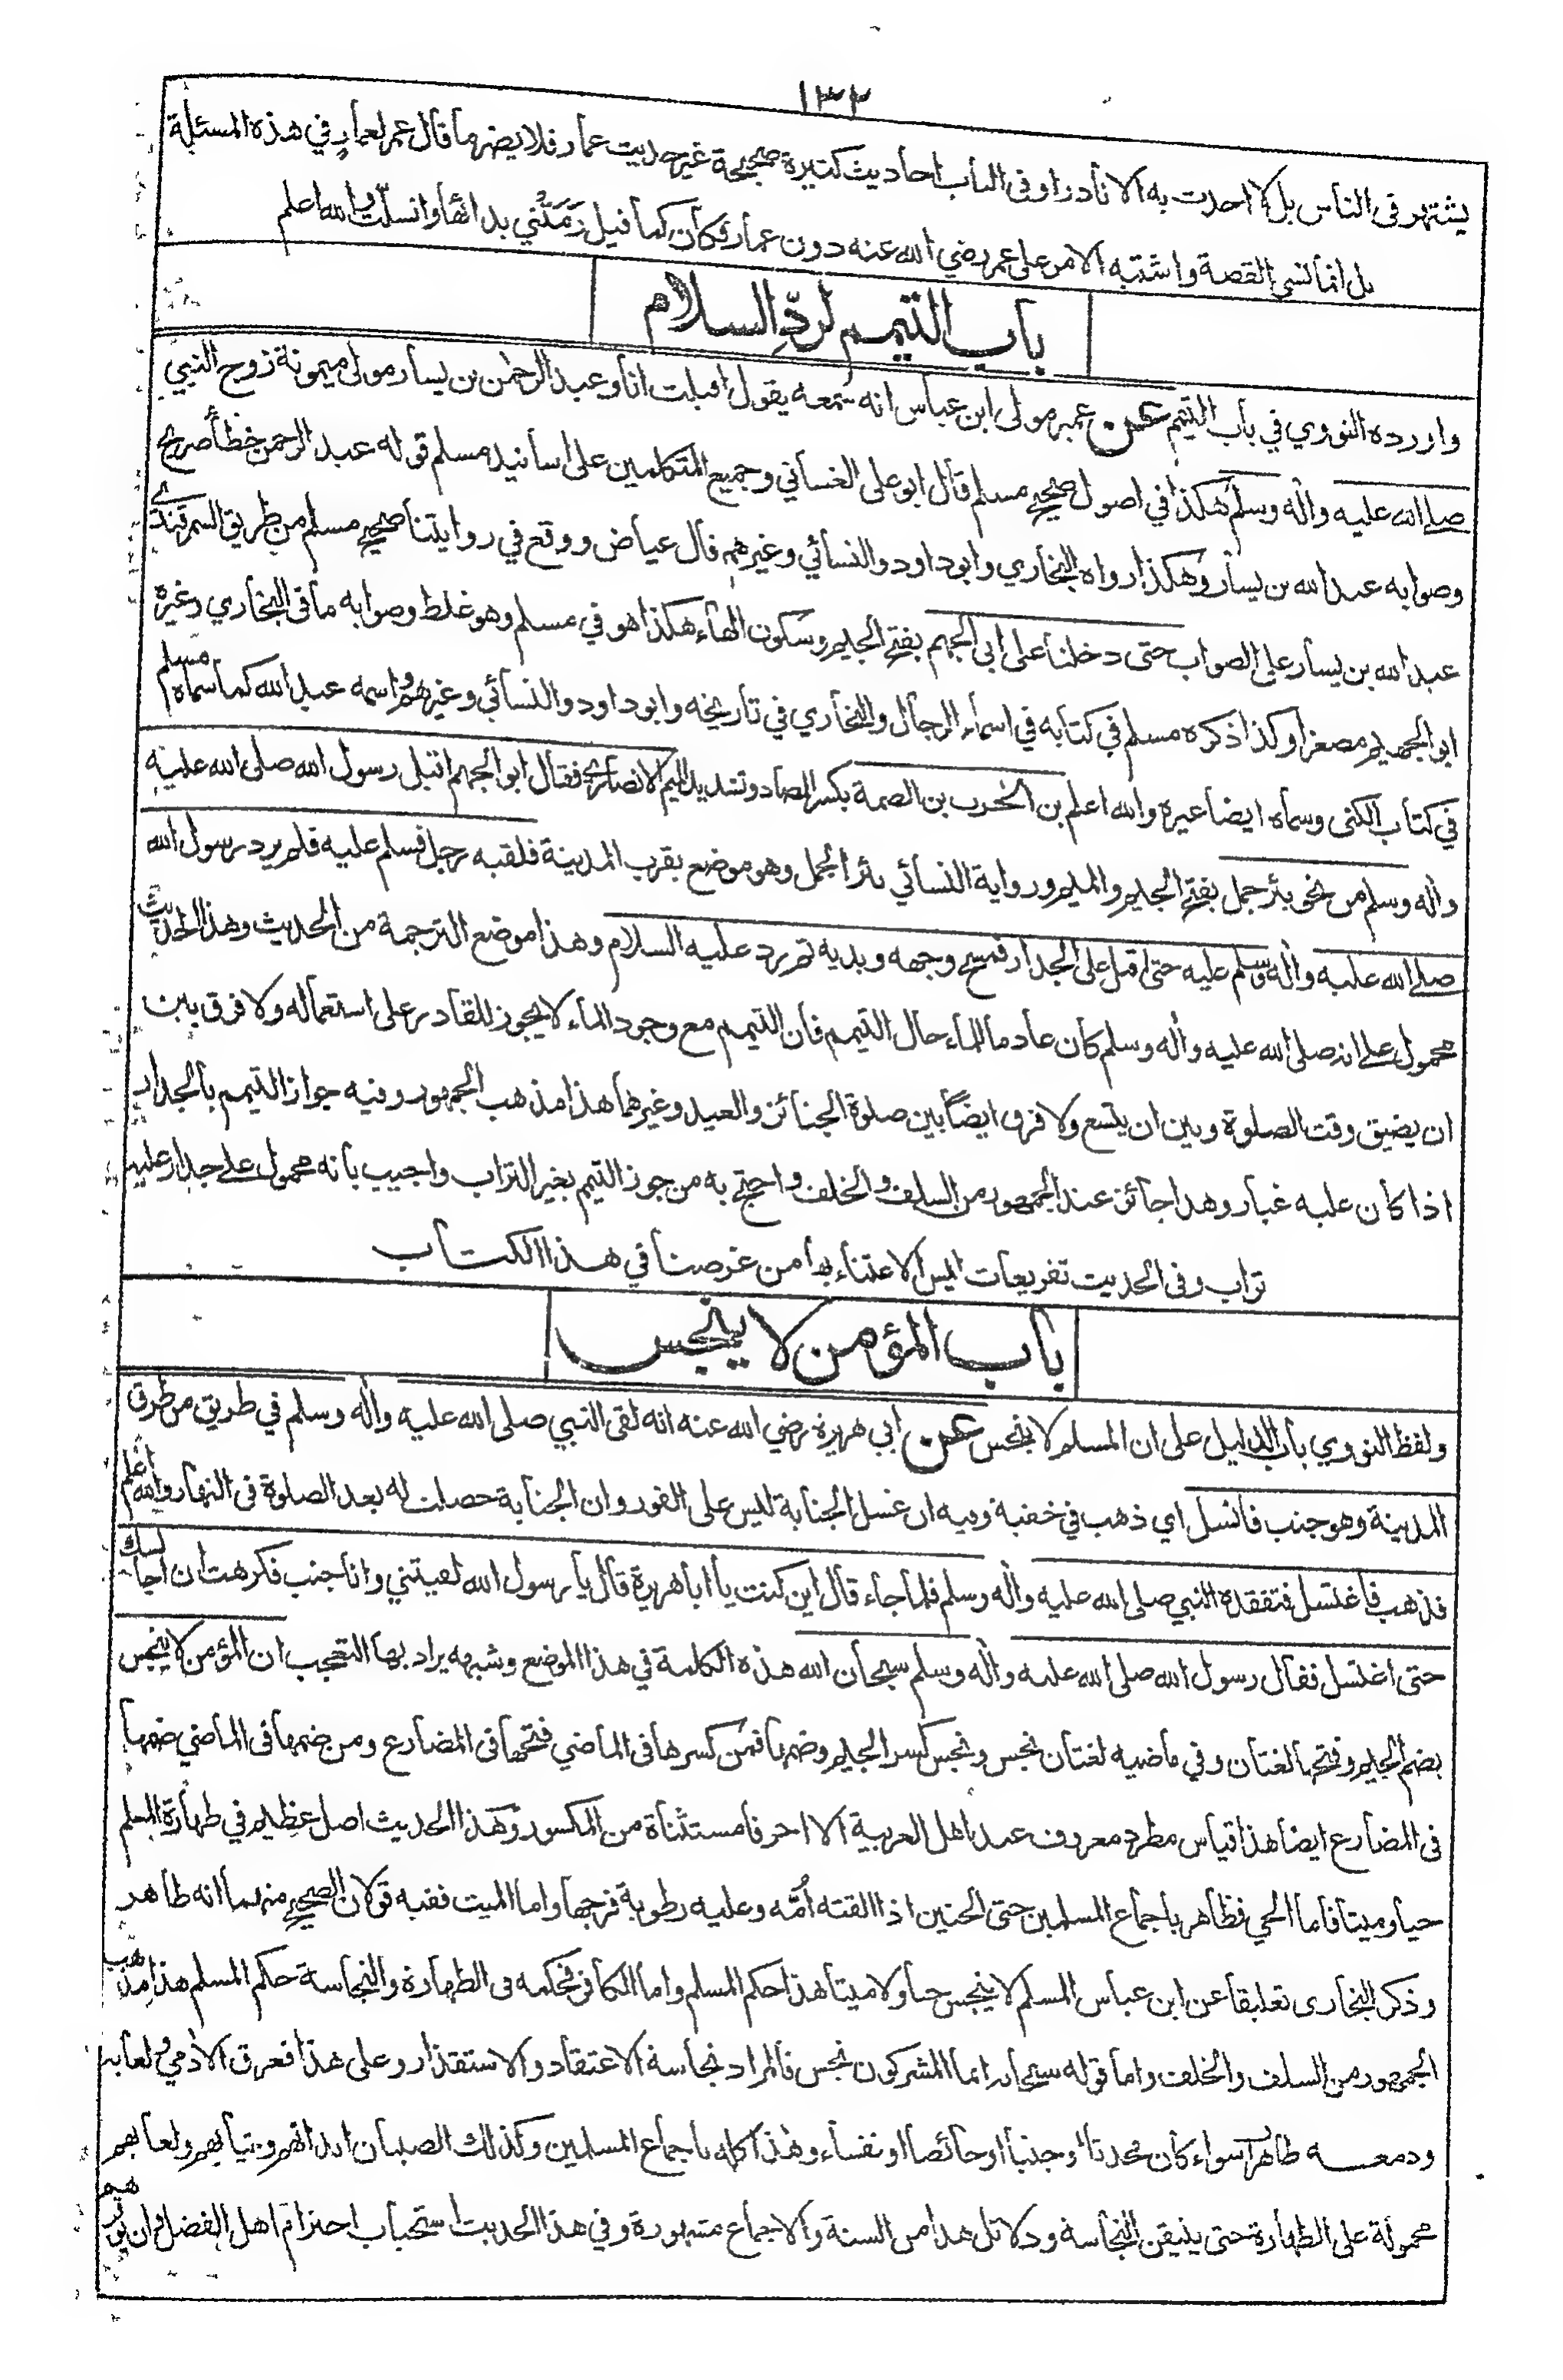 ١٣٢
يشتهر في الناس بل لا احدث به الا نادرا وفي الباب احاديث كثيرة صحيحة غير حديث عمار فلا يضر ما قال عمر لعمار في هذه المسئلة
بل انما نسي القصة واشتبه الامر على عمر رضي الله عنه دون عمار فكان كما قيل رمتني بدائها وانسلت والله اعلم
باب التيمم لردِّ السلام
واورده النووي في باب التيمم عن عمير مولى ابن عباس انه سمعه يقول اقبلت انا وعبد الرحمن بن يسار مولى ميمونة زوج النبي
صلے الله عليه واٰله وسلم هكذا في اصول صحيح مسلم قال ابو علي الغساني وجميع المتكلمين على اسانيد مسلم قوله عبد الرحمن خطأ صريح
وصوابه عبد الله بن يسار وهكذا رواه البخاري وابو داود والنسائي وغيرهم قال عياض ووقع في روايتنا صحيح مسلم من طريق السمرقندي
عبد الله بن يسار على الصواب حتى دخلنا على ابي الجهم بفتح الجيم وسكون الهاء هكذا هو في مسلم وهو غلط وصوابه ما في البخاري وغيره
ابو الجهيم مصغرا وكذا ذكره مسلم في كتابه في اسماء الرجال والبخاري في تاريخه وابو داود والنسائي وغيرهم واسمه عبد الله كما سماه مسلم
في كتاب الكنى وسماه ايضا غيره والله اعلم بن الحٰرث بن الصمة بكسر الصاد وتشديد الميم الانصاري فقال ابو الجهم اقبل رسول الله صلى الله عليه
واٰله وسلم من نحو بئر جمل بفتح الجيم والميم ورواية النسائي بئر الجمل وهو موضع بقرب المدينة فلقيه رجل فسلم عليه فلم يرد رسول الله
صلے الله عليه واٰله وسلم عليه حتى اقبل على الجدار فمسح وجهه ويديه ثم رد عليه السلام وهذا موضع الترجمة من الحديث وهذا الحديث
محمول على انه صلى الله عليه واٰله وسلم كان عادما للماء حال التيمم فان التيمم مع وجود الماء لا يجوز للقادر على استعماله ولا فرق بين
ان يضيق وقت الصلوة وبين ان يتسع ولا فرق ايضاً بين صلوة الجنائز والعيد وغيرهما هذا مذهب الجمهور وفيه جواز التيمم بالجدار
اذا كان عليه غبار وهذا جائز عند الجمهور من السلف والخلف واحتج به من جوز التيمم بغير التراب واجيب بانه محمول على جدار عليه
تراب وفي الحديث تفريعات ليس الاعتناء بها من غرضنا في هذا الكتاب
باب المؤمن لا ينجس
ولفظ النووي باب الدليل على ان المسلم لا ينجس عن ابي هريرة رضي الله عنه انه لقى النبي صلى الله عليه واٰله وسلم في طريق من طرق
المدينة وهو جنب فانسل اي ذهب في خفية وفيه ان غسل الجنابة ليس على الفور وان الجنابة حصلت له بعد الصلوة في النهار والله اعلم
فذهب فاغتسل فتفقده النبي صلى الله عليه واٰله وسلم فلما جاء قال اين كنت يا ابا هريرة قال يا رسول الله لقيتني وانا جنب فكرهت ان اجالسك
حتى اغتسل فقال رسول الله صلى الله عليه واٰله وسلم سبحان الله هذه الكلمة في هذا الموضع وشبهه يراد بها التعجب ان المؤمن لا ينجس
بضم الجيم وفتحها لغتان وفي ماضيه لغتان نجس ونجس بكسر الجيم وضمها فمن كسرها في الماضي فتحها في المضارع ومن ضمها في الماضي ضمها
في المضارع ايضا هذا قياس مطرد معروف عند اهل العربية الا احرفا مستثناة من المكسور وهذا الحديث اصل عظيم في طهارة المسلم
حيا وميتا فاما الحي فطاهر باجماع المسلمين حتى الجنين اذا القته اُمّه وعليه رطوبة فرجها واما الميت ففيه قولان الصحيح منهما انه طاهر
وذكر البخاري تعليقا عن ابن عباس المسلم لا ينجس حيا ولا ميتا هذا حكم المسلم واما الكافر فحكمه في الطهارة والنجاسة حكم المسلم هذا مذهب
الجمهور من السلف والخلف واما قوله سبحانه انما المشركون نجس فالمراد نجاسة الاعتقاد والاستقذار وعلى هذا فعرق الاٰدمي ولعابه
ودمعه طاهر سواء كان محدثا او جنبا او حائضا او نفساء وهذا كله باجماع المسلمين وكذلك الصبيان ابدانهم وثيابهم ولعابهم
محمولة على الطهارة حتى يتيقن النجاسة ودلائل هذا من السنة والاجماع مشهورة وفي هذا الحديث استحباب احترام اهل الفضل وان يوقرهم